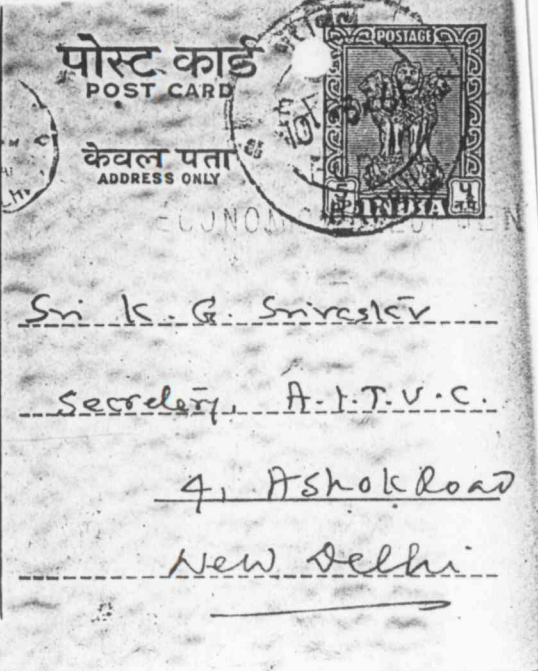 पोस्ट कार्ड
POST CARD
केवल पता
ADDRESS ONLY
POSTAGE
INDIA
Sri K. G. Srivastav
Secretary, A.I.T.U.C.
4, Ashok Road
New Delhi